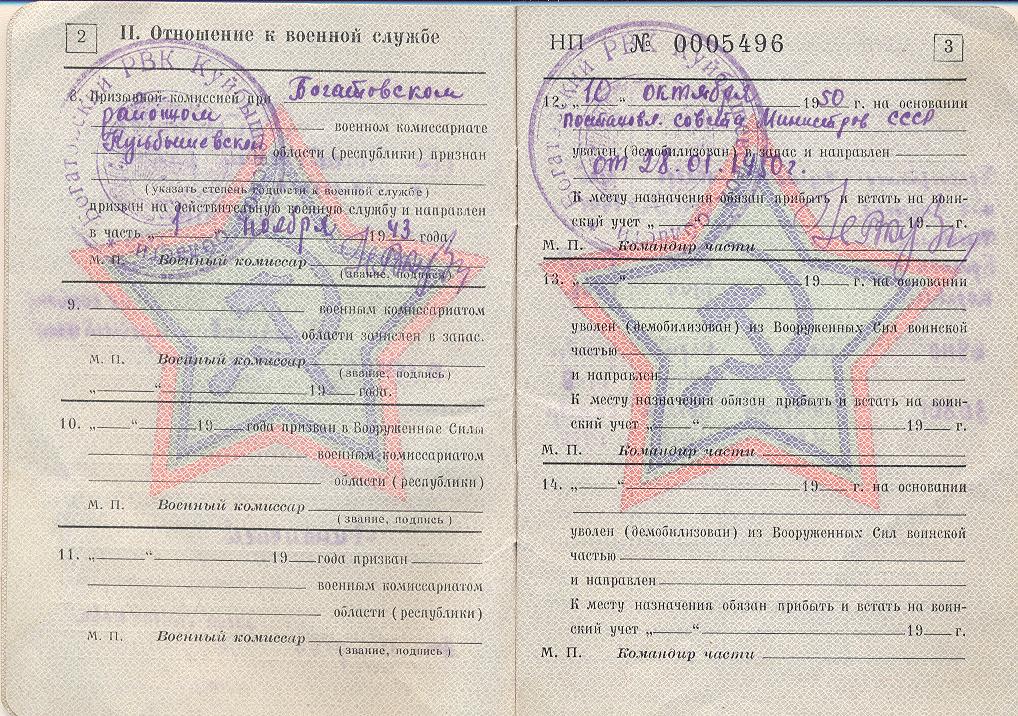 2
II. Отношение к военной службе
8. Призывной комиссией при Богатовском
районном военном комиссариате
Куйбышевской области (республики) признан
(указать степень годности к военной службе)
призван на действительную военную службу и направлен
в часть „ 1 ноября 1943 года
М. П. Военный комиссар
(звание, подпись)
9. военным комиссариатом
области зачислен в запас.
М. П. Военный комиссар
(звание, подпись)
„ “ 19 года.
10. „ “ 19 года призван в Вооруженные Силы
военным комиссариатом
области (республики)
М. П. Военный комиссар
(звание, подпись)
11. „ “ 19 года призван
военным комиссариатом
области (республики)
М. П. Военный комиссар
(звание, подпись)
НП № 0005496
3
12. „ 10 “ октября 1950 г. на основании
постановл. совета Министров СССР
уволен (демобилизован) в запас и направлен
от 28.01.1950г.
К месту назначения обязан прибыть и встать на воин-
ский учет „ “ 19 г.
М. П. Командир части
13. „ “ 19 г. на основании
уволен (демобилизован) из Вооруженных Сил воинской
частью
и направлен
К месту назначения обязан прибыть и встать на воин-
ский учет „ “ 19 г.
М. П. Командир части
14. „ “ 19 г. на основании
уволен (демобилизован) из Вооруженных Сил воинской
частью
и направлен
К месту назначения обязан прибыть и встать на воин-
ский учет „ “ 19 г.
М. П. Командир части